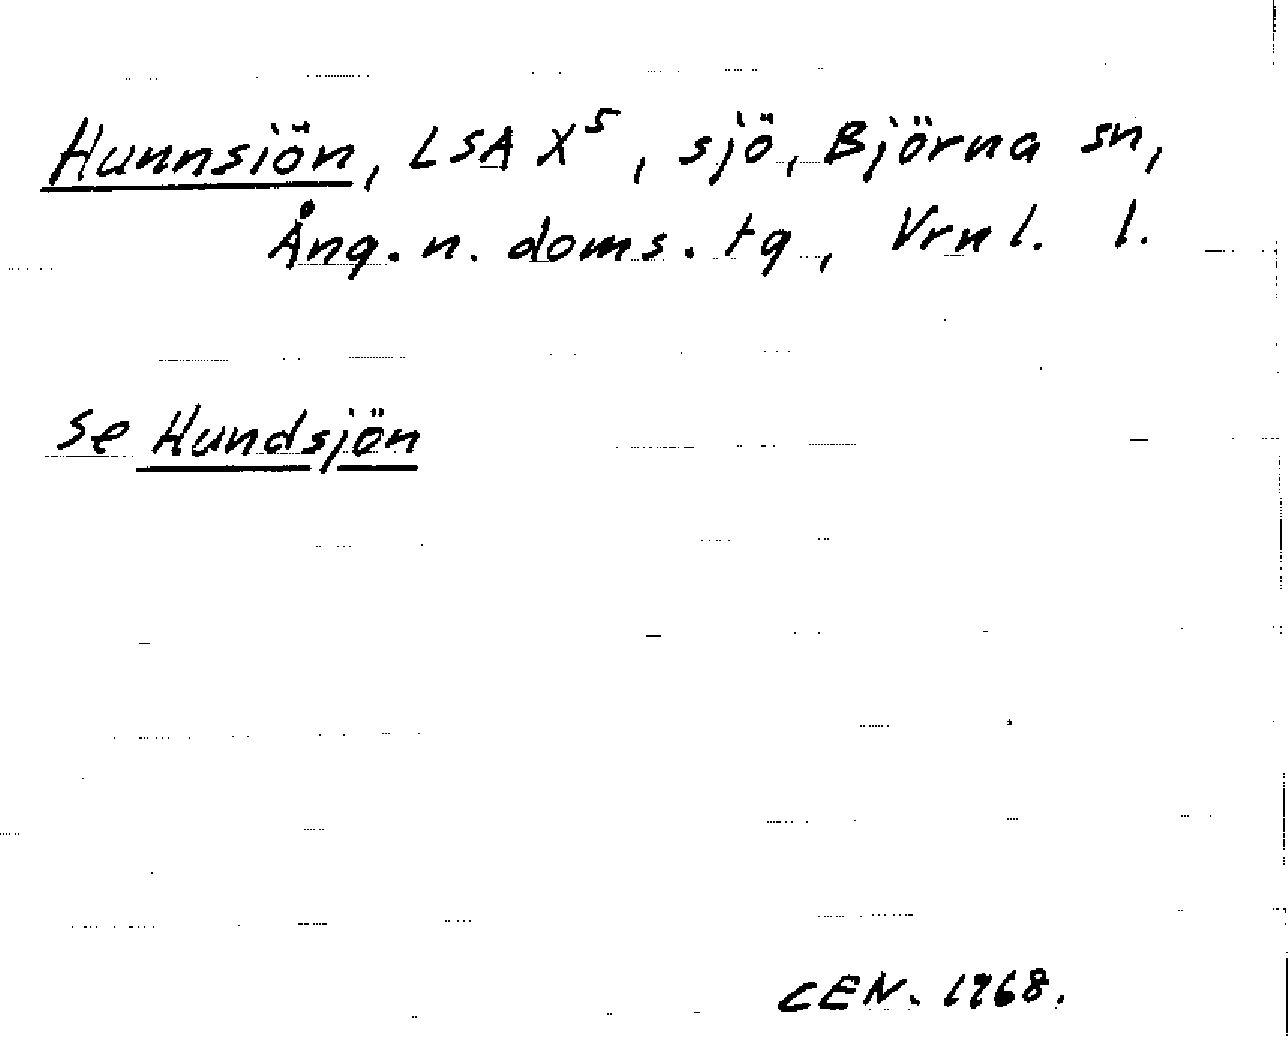 Hunnsiön, LSA X⁵, sjö, Björna sn,
Ång. n. doms. tg, Vrnl. l.
se Hundsjön
CEN. 1968.